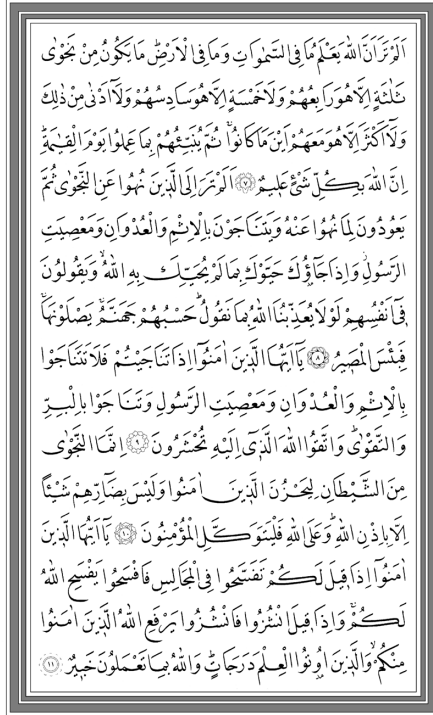 اَلَمْ تَرَ اَنَّ اللّٰهَ يَعْلَمُ مَا فِى السَّمٰوَاتِ وَمَا فِى الْاَرْضِۜ مَا يَكُونُ مِنْ نَجْوٰى
ثَلٰثَةٍ اِلَّا هُوَ رَابِعُهُمْ وَلَا خَمْسَةٍ اِلَّا هُوَ سَادِسُهُمْ وَلَٓا اَدْنٰى مِنْ ذٰلِكَ
وَلَٓا اَكْثَرَ اِلَّا هُوَ مَعَهُمْ اَيْنَ مَا كَانُواۚ ثُمَّ يُنَبِّئُهُمْ بِمَا عَمِلُوا يَوْمَ الْقِيٰمَةِۜ
اِنَّ اللّٰهَ بِكُلِّ شَيْءٍ عَلِيمٌ ﴿٧﴾ اَلَمْ تَرَ اِلَى الَّذِينَ نُهُوا عَنِ النَّجْوٰى ثُمَّ
يَعُودُونَ لِمَا نُهُوا عَنْهُ وَيَتَنَاجَوْنَ بِالْاِثْمِ وَالْعُدْوَانِ وَمَعْصِيَتِ
الرَّسُولِۘ وَاِذَا جَٓاؤُ۫كَ حَيَّوْكَ بِمَا لَمْ يُحَيِّكَ بِهِ اللّٰهُۙ وَيَقُولُونَ
فِٓى اَنْفُسِهِمْ لَوْلَا يُعَذِّبُنَا اللّٰهُ بِمَا نَقُولُۜ حَسْبُهُمْ جَهَنَّمُۚ يَصْلَوْنَهَاۚ
فَبِئْسَ الْمَصِيرُ ﴿٨﴾ يَٓا اَيُّهَا الَّذِينَ اٰمَنُٓوا اِذَا تَنَاجَيْتُمْ فَلَا تَتَنَاجَوْا
بِالْاِثْمِ وَالْعُدْوَانِ وَمَعْصِيَتِ الرَّسُولِ وَتَنَاجَوْا بِالْبِرِّ
وَالتَّقْوٰىۜ وَاتَّقُوا اللّٰهَ الَّذِٓى اِلَيْهِ تُحْشَرُونَ ﴿٩﴾ اِنَّمَا النَّجْوٰى
مِنَ الشَّيْطَانِ لِيَحْزُنَ الَّذِينَ اٰمَنُوا وَلَيْسَ بِضَٓارِّهِمْ شَيْـًٔا
اِلَّا بِاِذْنِ اللّٰهِۜ وَعَلَى اللّٰهِ فَلْيَتَوَكَّلِ الْمُؤْمِنُونَ ﴿١٠﴾ يَٓا اَيُّهَا الَّذِينَ
اٰمَنُٓوا اِذَا قِيلَ لَكُمْ تَفَسَّحُوا فِى الْمَجَالِسِ فَافْسَحُوا يَفْسَحِ اللّٰهُ
لَكُمْۚ وَاِذَا قِيلَ انْشُزُوا فَانْشُزُوا يَرْفَعِ اللّٰهُ الَّذِينَ اٰمَنُوا
مِنْكُمْۙ وَالَّذِينَ اُو۫تُوا الْعِلْمَ دَرَجَاتٍۜ وَاللّٰهُ بِمَا تَعْمَلُونَ خَبِيرٌ ﴿١١﴾